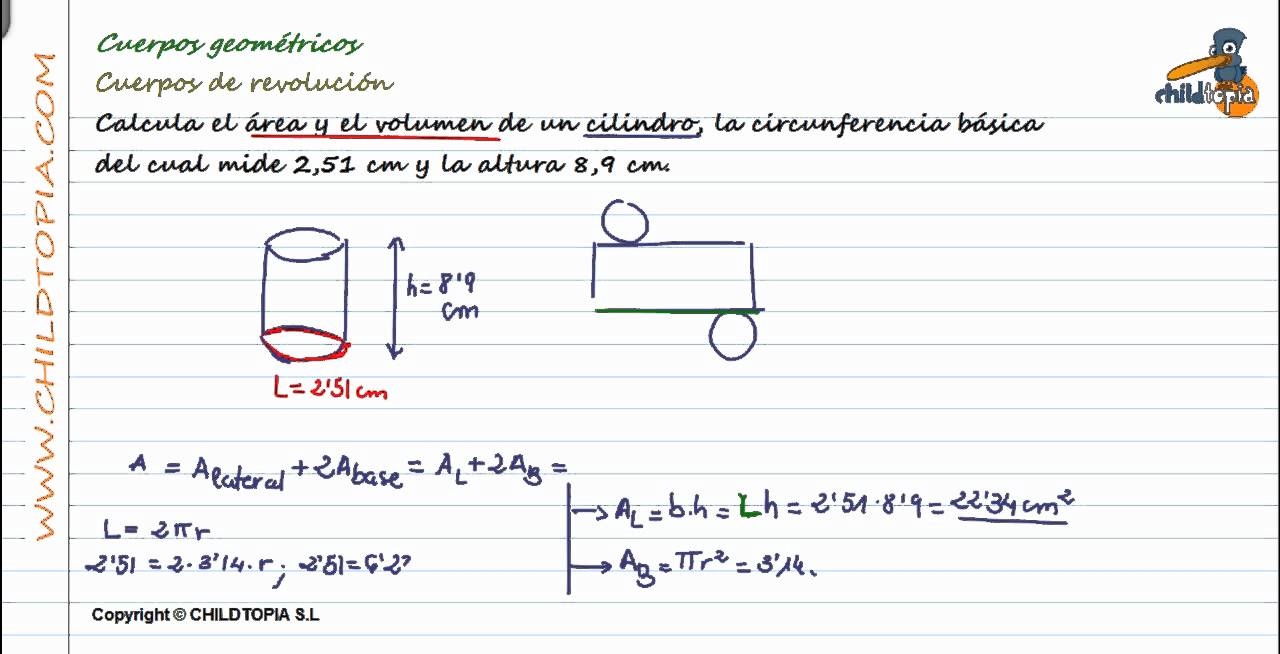 WWW.CHILDTOPIA.COM
Cuerpos geométricos
Cuerpos de revolución
childtopia
Calcula el área y el volumen de un cilindro, la circunferencia básica
del cual mide 2,51 cm y la altura 8,9 cm.
h = 8'9
cm
L = 2'51 cm
A = Alateral + 2Abase = AL + 2AB =
AL = b.h = Lh = 2'51 · 8'9 = 22'34 cm²
L = 2πr
2'51 = 2 · 3'14 · r ; 2'51 = 6'2
AB = πr² = 3'14 .
Copyright © CHILDTOPIA S.L